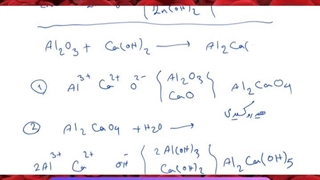 Zn(OH)₂
Al₂O₃ + Ca(OH)₂ → Al₂Ca(
① Al³⁺ Ca²⁺ O²⁻ { Al₂O₃ CaO } Al₂CaO₄
② Al₂CaO₄ + H₂O →
2Al³⁺ Ca²⁺ OH⁻ { 2Al(OH)₃ Ca(OH)₂ } Al₂Ca(OH)₅